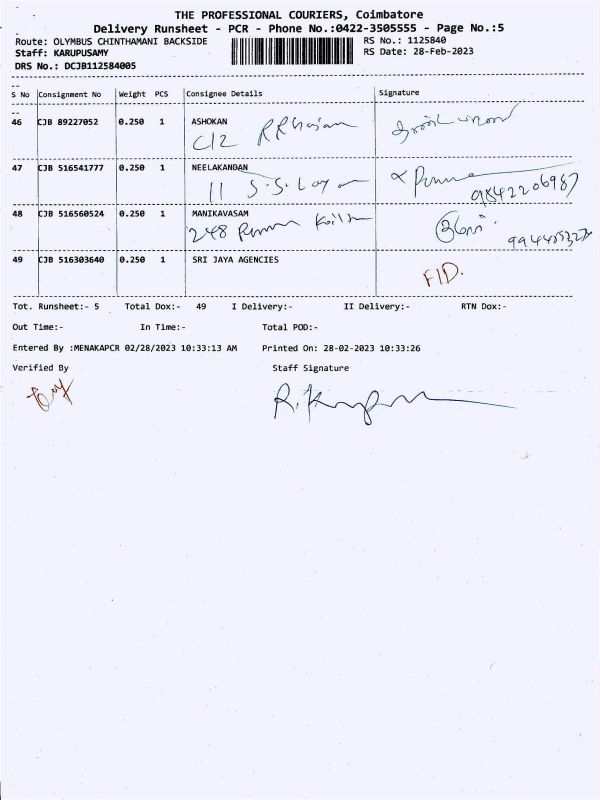 THE PROFESSIONAL COURIERS, Coimbatore
Delivery Runsheet - PCR - Phone No.:0422-3505555 - Page No.:5
Route: OLYMBUS CHINTHAMANI BACKSIDE RS No.: 1125840
Staff: KARUPUSAMY RS Date: 28-Feb-2023
DRS No.: DCJB112584005
S No Consignment No Weight PCS Consignee Details Signature
46 CJB 89227052 0.250 1 ASHOKAN
C/2
47 CJB 516541777 0.250 1 NEELAKANDAN
11 S.S. 9842206987
48 CJB 516560524 0.250 1 MANIKAVASAM
248
49 CJB 516303640 0.250 1 SRI JAYA AGENCIES
Tot. Runsheet:- 5 Total Dox:- 49 I Delivery:- II Delivery:- RTN Dox:-
Out Time:- In Time:- Total POD:-
Entered By :MENAKAPCR 02/28/2023 10:33:13 AM Printed On: 28-02-2023 10:33:26
Verified By Staff Signature